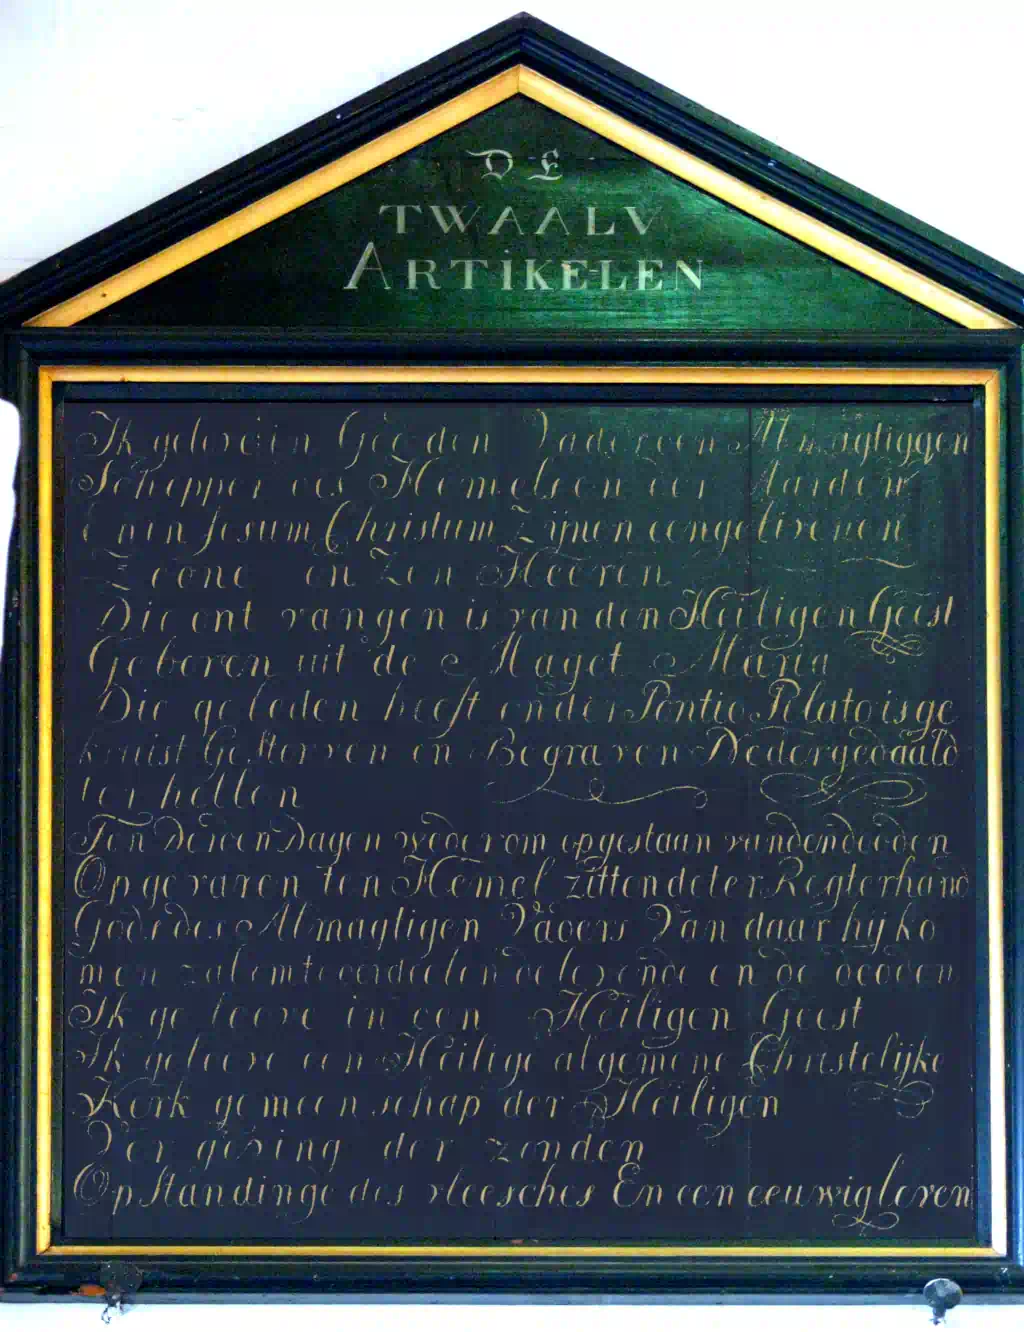 DE
TWAALV
ARTIKELEN
Ik geloove in God den Vader een Almagtiggen
Schepper des Hemels en der Aarden
En in Jesum Christum Zijnen eengeboren
Zoone en Zen Heeren
Die ont vangen is van den Heiligen Geest
Geboren uit de Maget Maria
Die geleden heeft onder Pontio Pilato is ge
kruist Gestorven en Begraven Nedergedaald
ter hellen
Ten derden Dagen wederom opgestaan van den dooden
Opgevaren ten Hemel zittende ter Regterhand
Gods des Almagtigen Vaders Van daar hij ko
men zal om te oordeelen de levende en de dooden
Ik geloove in een Heiligen Geest
Ik geloove een Heilige algemene Christelijke
Kerk gemeenschap der Heiligen
Vergeving der zonden
Opstandinge des vleesches En een eeuwig leven